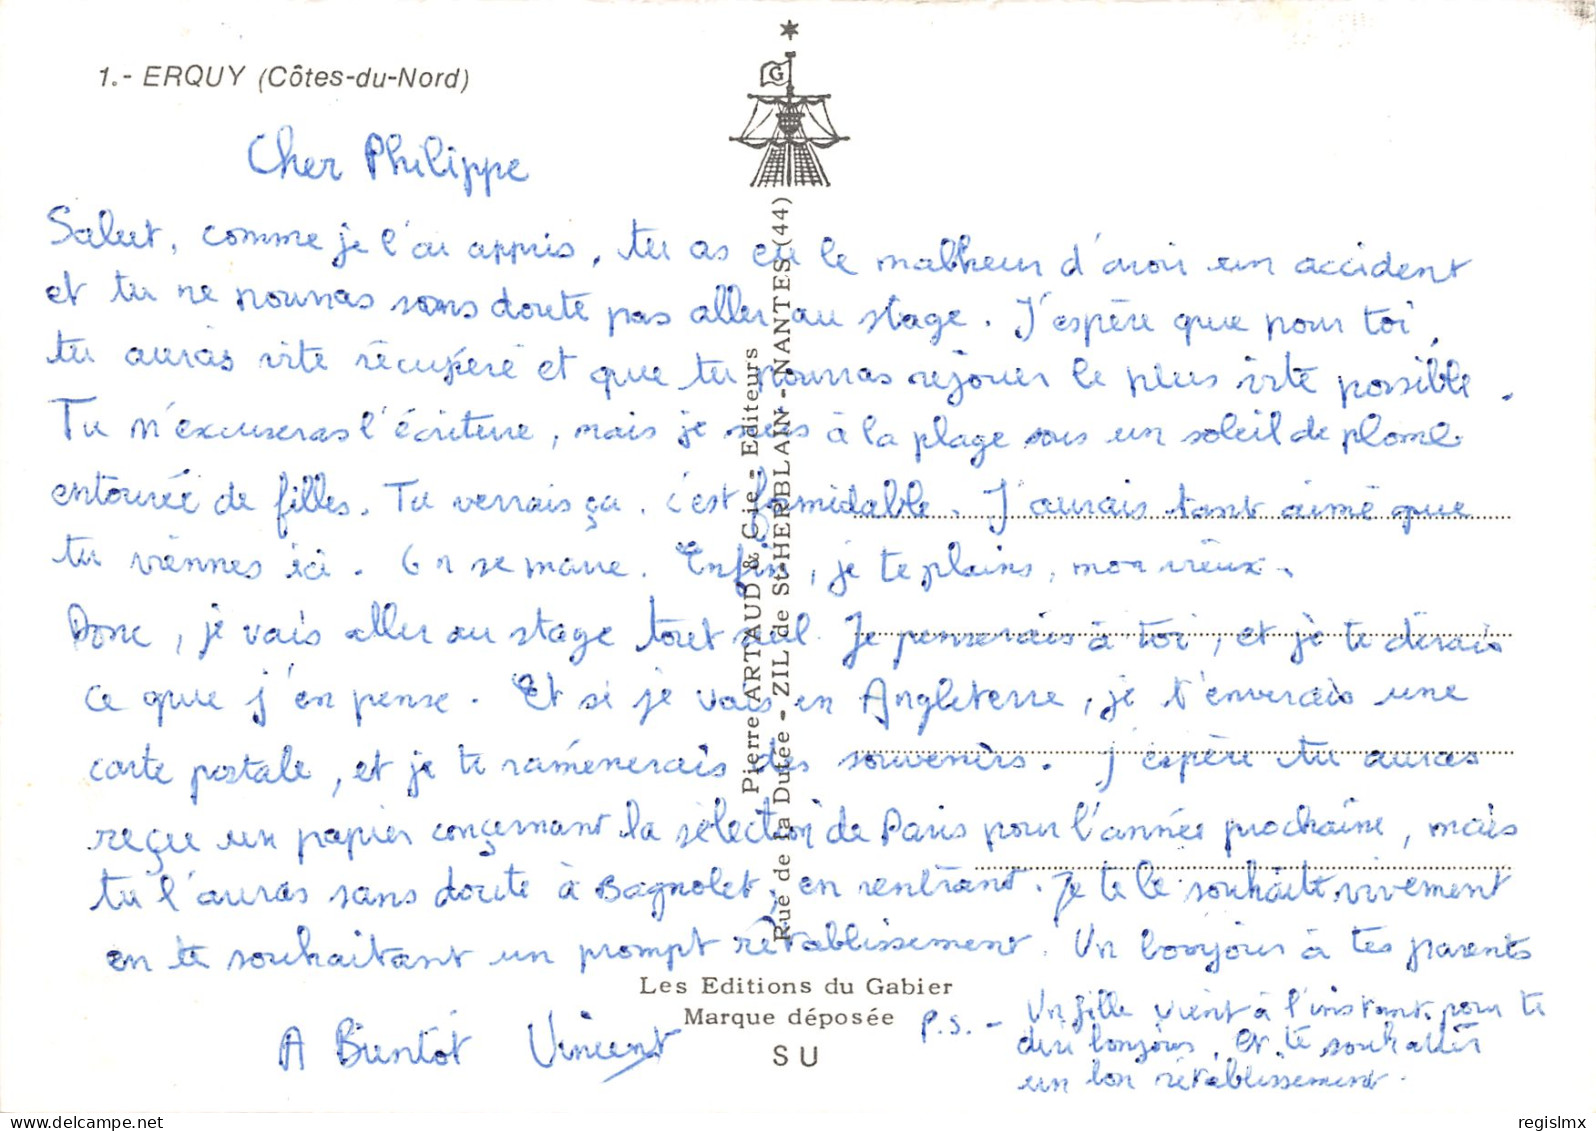 1.- ERQUY (Côtes-du-Nord)
G
Cher Philippe
Salut, comme je l'ai appris, tu as eu le malheur d'avoir un accident
et tu ne pourras sans doute pas aller au stage. J'espère que pour toi,
tu auras vite récupéré et que tu pourras rejouer le plus vite possible.
Tu m'excuseras l'écriture, mais je suis à la plage sous un soleil de plomb
entourée de filles. Tu verrais ça, c'est formidable. J'aurais tant aimé que
tu viennes ici. On se marre. Enfin, je te plains, mon vieux.
Donc, je vais aller au stage tout seul. Je penserais à toi, et je te dirais
ce que j'en pense. Et si je vais en Angleterre, je t'enverais une
carte postale, et je te ramènerais des souvenirs. J'espère tu auras
reçue un papier conçernant la sélection de Paris pour l'année prochaine, mais
tu l'auras sans doute à Bagnolet, en rentrant. Je te le souhaite vivement
en te souhaitant un prompt rétablissement. Un bonjour à tes parents
A Bientôt Vincent
P.S. - Un fille vient à l'instant pour te
dire bonjour, et te souhaiter
un bon rétablissement.
Pierre ARTAUD & Cie - Editeurs
Rue de la Dutée - ZIL de St-HERBLAIN - NANTES (44)
Les Editions du Gabier
Marque déposée
SU
regislmx